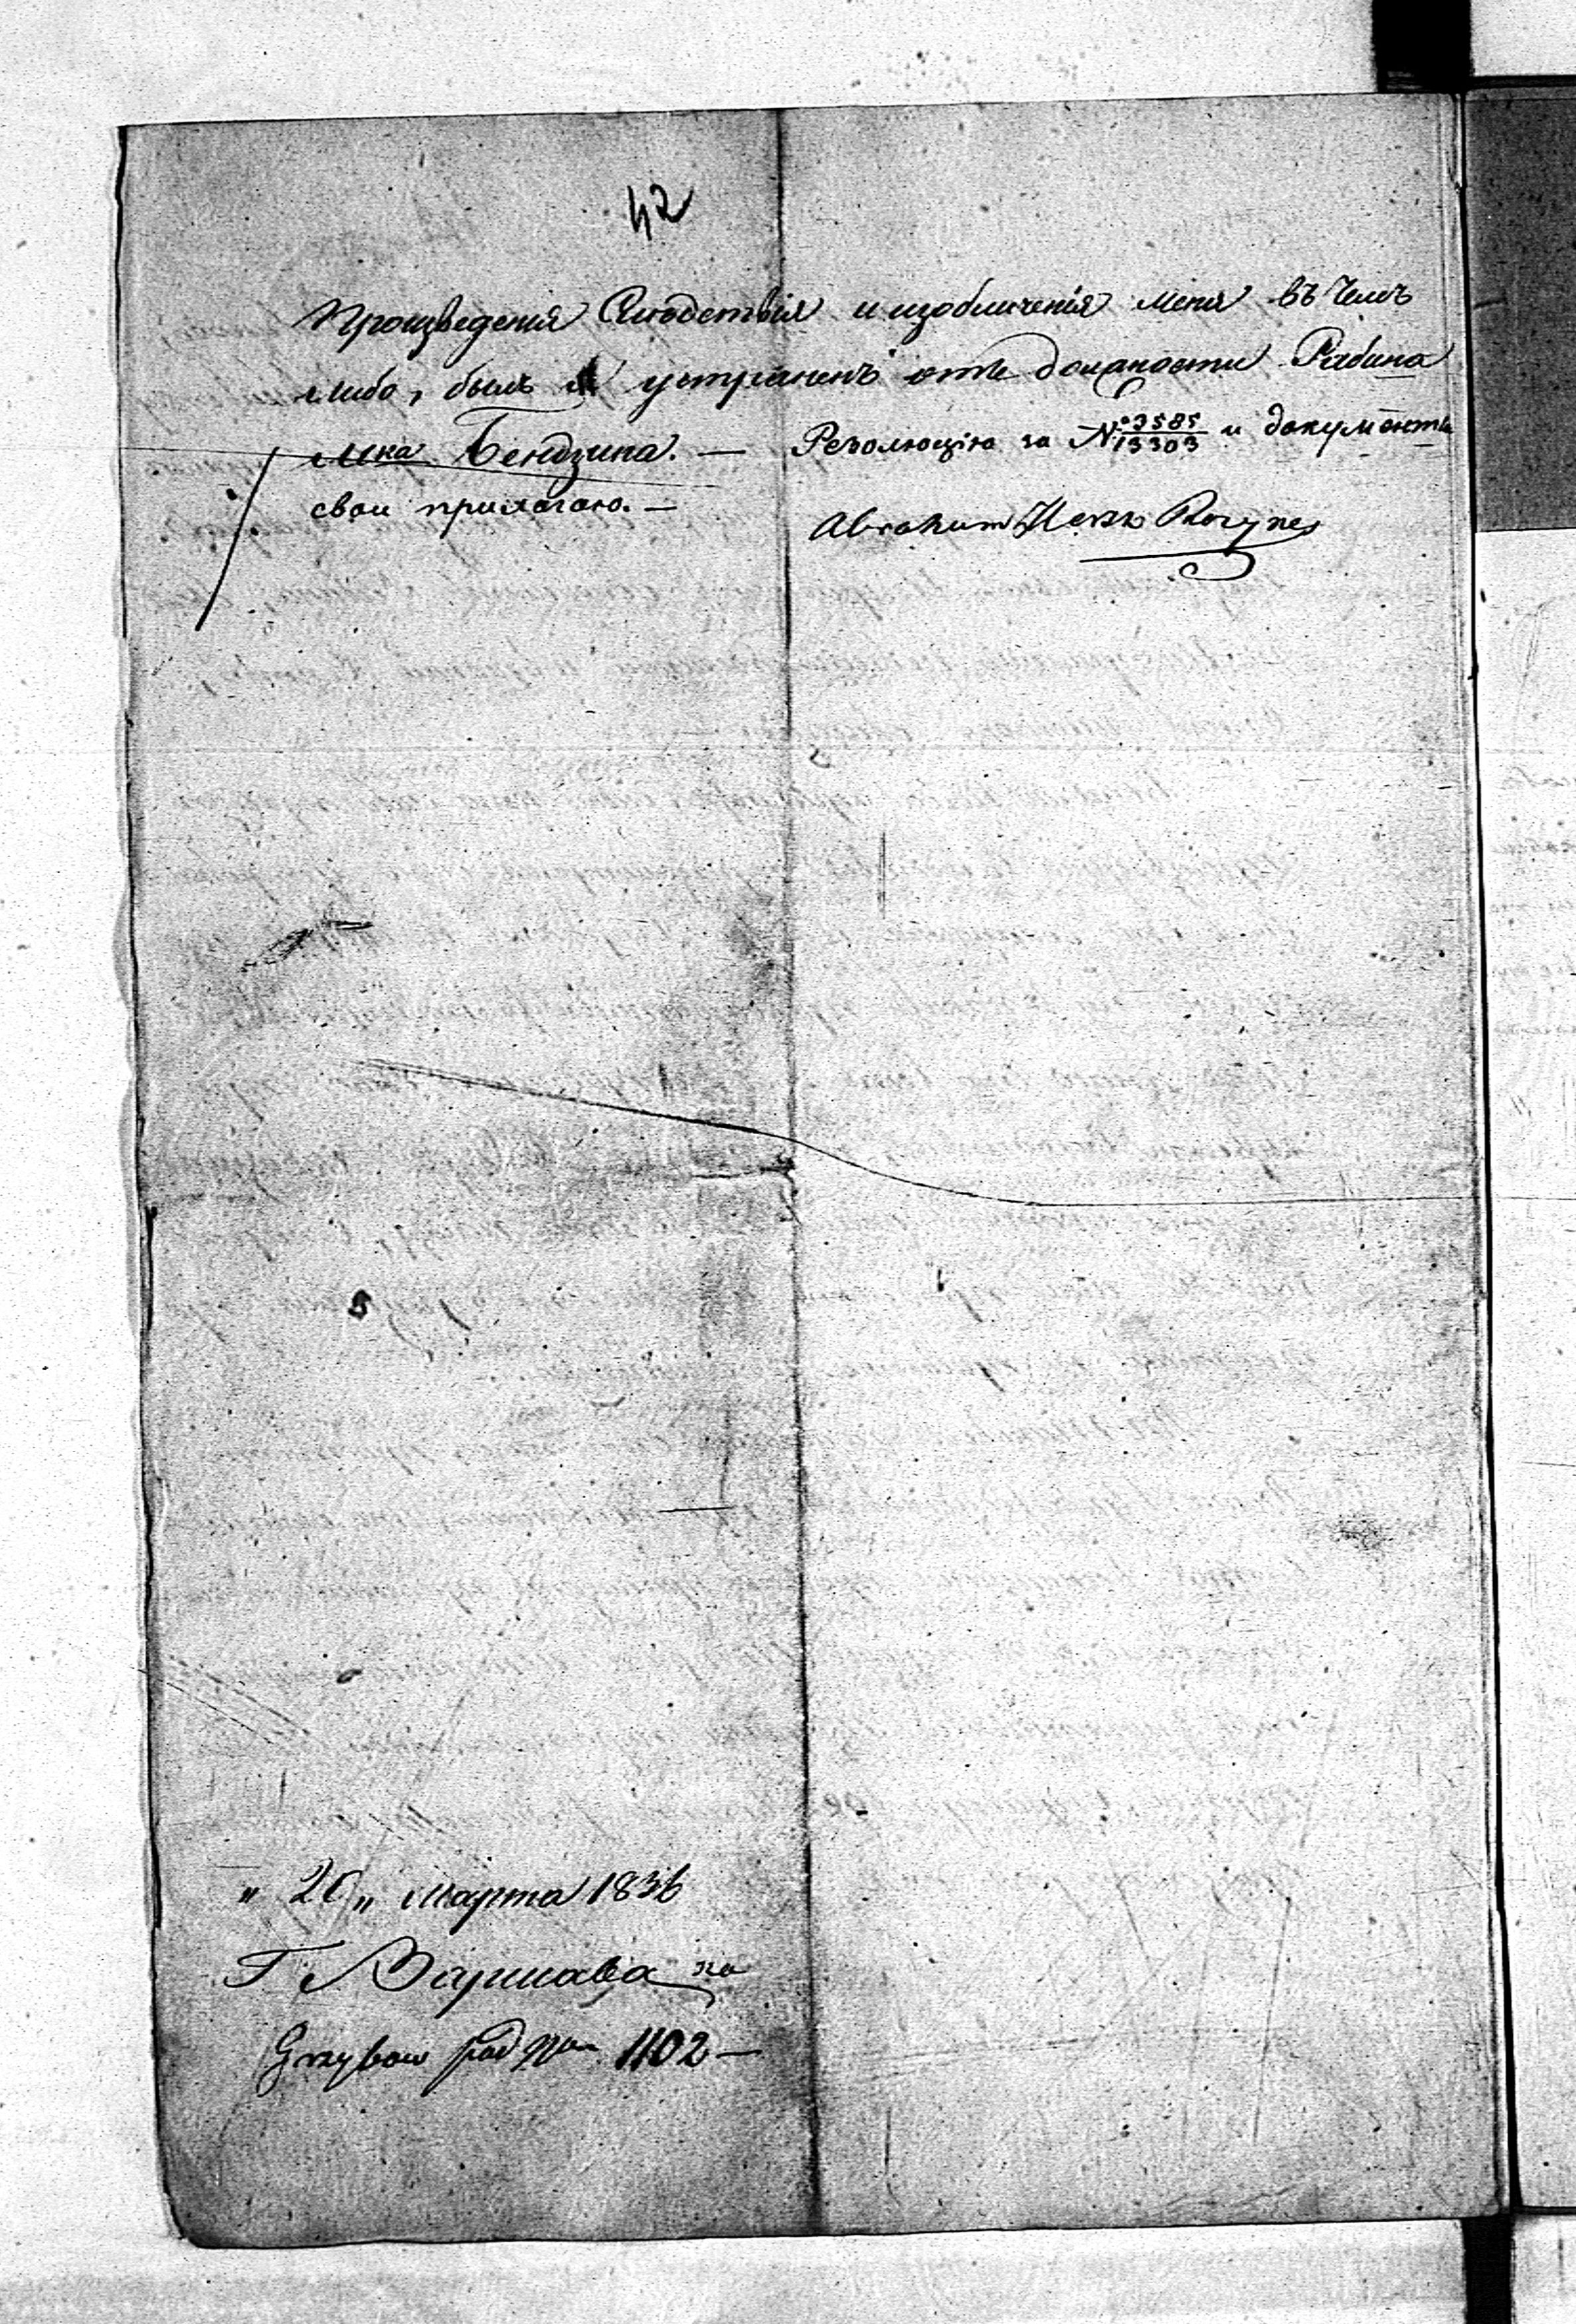 42
произведенія Слѣдствія и изобличенія меня въ чемъ
либо, былъ я устраненъ отъ должности Рабина
мка Бендзина. — Резолюцію за № 3585/13303 и документы
свои прилагаю. —
Abraham Hersz
" 20 " Марта 1836
Г Варшава на
Grzybow pod Nrem 1102 —